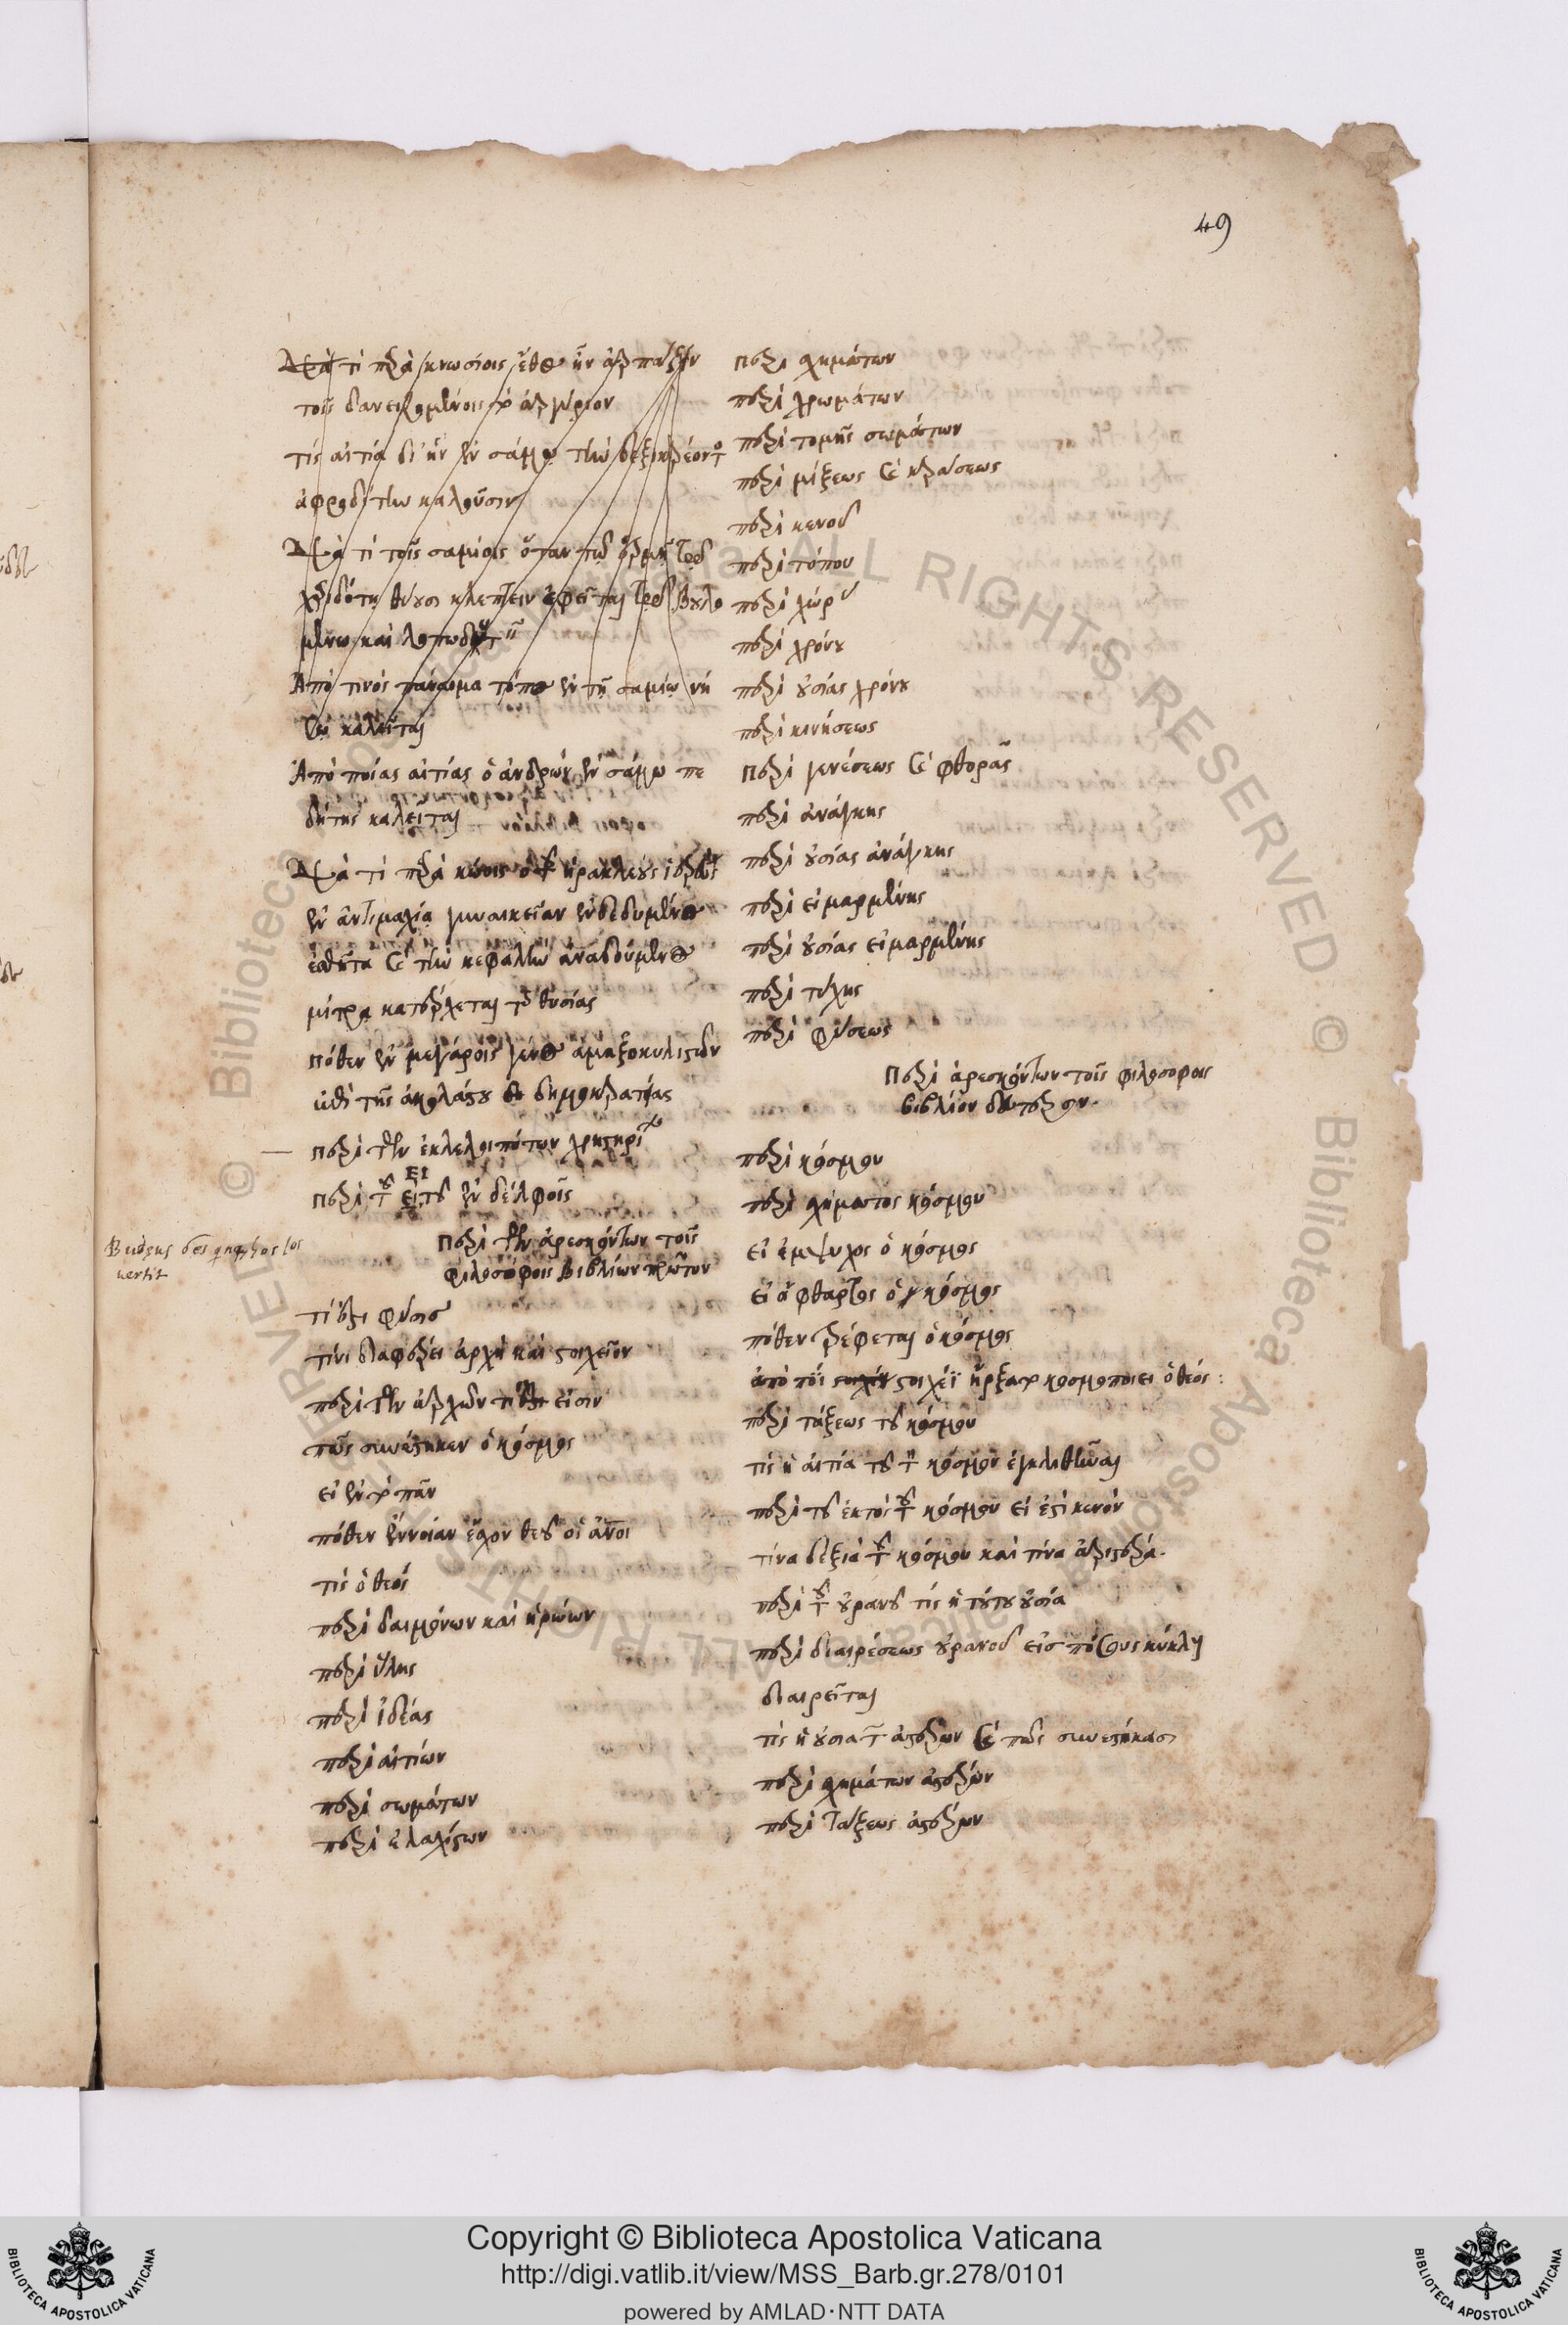 49
Διὰ τί παρὰ κνωσίοις ἔθος ἦν ἁρπάζειν
τοῖς δανειζομένοις τὸ ἀργύριον
τίς αἰτία δι' ἣν ἐν σάμῳ τὴν δεξικρέοντος
ἀφροδίτην καλοῦσιν
Διὰ τί τοῖς σαμίοις ὅταν τῷ ἑρμῇ τῷ
χαριδότῃ θύουσι κλέπτειν ἐφεῖται τῷ βουλο
μένῳ καὶ λωποδυτεῖν
Ἀπὸ τίνος πάναιμα τόπος ἐν τῇ σαμίῳ νή
σῳ καλεῖται
Ἀπὸ ποίας αἰτίας ὁ ἀνδρὼν ἐν σάμῳ πε
δήτης καλεῖται
Διὰ τί παρὰ κώοις ὁ τοῦ ἡρακλέους ἱερεὺς
ἐν ἀντιμαχίᾳ γυναικεῖαν ἐνδεδυμένος
ἐσθῆτα καὶ τὴν κεφαλὴν ἀναδούμενος
μίτρᾳ κατάρχεται τῆς θυσίας
πόθεν ἐν μεγάροις γένος ἁμαξοκυλιστῶν
ἐπὶ τῆς ἀκολάστου δημοκρατίας
περὶ τῶν ἐκλελοιπότων χρηστηρίων
περὶ τοῦ ΕΙ τοῦ ἐν δελφοῖς
περὶ τῶν ἀρεσκόντων τοῖς
φιλοσόφοις βιβλίων πρῶτον
Budęus
vertit
τί ἐστι φύσις
τίνι διαφέρει ἀρχὴ καὶ στοιχεῖον
περὶ τῶν ἀρχῶν τίνες εἰσιν
πῶς συνέστηκεν ὁ κόσμος
εἰ ἓν τὸ πᾶν
πόθεν ἔννοιαν ἔσχον θεοῦ οἱ ἄνθρωποι
τίς ὁ θεός
περὶ δαιμόνων καὶ ἡρώων
περὶ ὕλης
περὶ ἰδέας
περὶ αἰτίων
περὶ σωμάτων
περὶ ἐλαχίστων
περὶ σχημάτων
περὶ χρωμάτων
περὶ τομῆς σωμάτων
περὶ μίξεως καὶ κράσεως
περὶ κενοῦ
περὶ τόπου
περὶ χώρου
περὶ χρόνου
περὶ οὐσίας χρόνου
περὶ κινήσεως
περὶ γενέσεως καὶ φθορᾶς
περὶ ἀνάγκης
περὶ οὐσίας ἀνάγκης
περὶ εἱμαρμένης
περὶ οὐσίας εἱμαρμένης
περὶ τύχης
περὶ φύσεως
περὶ ἀρεσκόντων τοῖς φιλοσόφοις
βιβλίον δεύτερον.
περὶ κόσμου
περὶ σχήματος κόσμου
εἰ ἔμψυχος ὁ κόσμος
εἰ ἄφθαρτος ὁ κόσμος
πόθεν τρέφεται ὁ κόσμος
ἀπὸ ποίου στοιχείου ἤρξατο κοσμοποιεῖν ὁ θεός:
περὶ τάξεως τοῦ κόσμου
τίς ἡ αἰτία τοῦ τὸν κόσμον ἐγκλιθῆναι
περὶ τοῦ ἐκτὸς τοῦ κόσμου εἰ ἐστὶ κενόν
τίνα δεξιὰ τοῦ κόσμου καὶ τίνα ἀριστερά.
περὶ τοῦ οὐρανοῦ τίς ἡ τούτου οὐσία
περὶ διαιρέσεως οὐρανοῦ εἰς πόσους κύκλους
διαιρεῖται
τίς ἡ οὐσία τῶν ἀστέρων καὶ πῶς συνεστήκασι
περὶ σχημάτων ἀστέρων
περὶ τάξεως ἀστέρων
Copyright © Biblioteca Apostolica Vaticana
http://digi.vatlib.it/view/MSS_Barb.gr.278/0101
powered by AMLAD·NTT DATA
BIBLIOTECA APOSTOLICA VATICANA
BIBLIOTECA APOSTOLICA VATICANA
© Biblioteca Apostolica Vaticana ALL RIGHTS RESERVED © Biblioteca Apostolica Vaticana ALL RIGHTS RESERVED